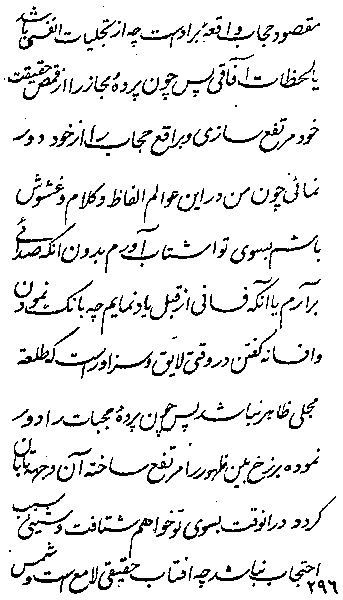 مقصود حجاب و اقعهٔ براوست چه از تجلیات انفسی باشد
یا لحظات آفاقی پس چون پردهٔ مجاز را از قمص حقیقت
خود مرتفع سازی و براقع حجاب را از خود دور
نمائی چون من در این عوالم الفاظ و کلام و غشوش
باشم بسوی تو اشتاب آورم بدون آنکه صدائی
برآرم یا آنکه فسانی از قبل یاد نمایم چه بانک نمودن
و افسانه گفتن در وقتی لایق و سزاوار است که طلعة
مجلی ظاهر نباشد پس چون پردهٔ حجبات را دور
نموده برزخ بین ظهور را مرتفع ساخته آن وجهه تابان
کردد در انوقت بسوی تو خواهم شتافت و شیئی سبب
احتجاب نباشد چه افتاب حقیقی لامع است و شمس
۲۹۶